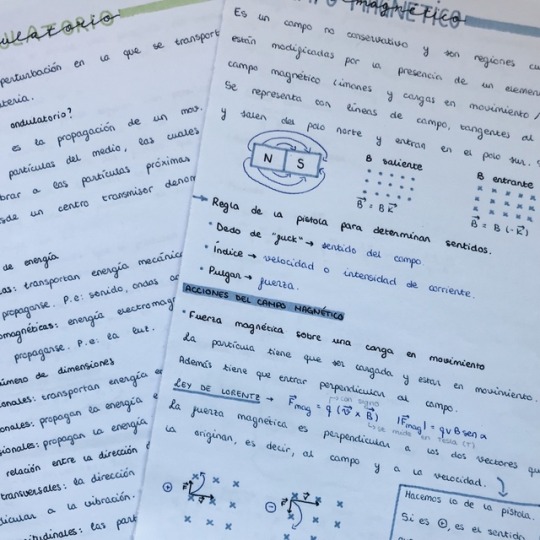 ulatorio
ULATORIO
perturbación en la que se transport
ateria.
ondulatorio?
es la propagación de un mov.
partículas del medio, las cuales
brar a las partículas próximas
sde un centro transmisor denom
de energía
cas: transportan energía mecánica
propagarse. P.e: sonido, ondas
omagnéticas: energía electromag
propagarse. P.e: la luz.
número de dimensiones
onales: transportan energía e
onales: propagan la energía e
sionales: propagan la energía
relación entre la dirección
transversales: la dirección
dicular a la vibración.
itudinales: las part
magnético
MAGNÉTICO
Es un campo no conservativo y son regiones cu
están modificadas por la presencia de un elemen
campo magnético (imanes y cargas en movimiento /
Se representa con líneas de campo, tangentes al
y salen del polo norte y entran en el polo sur.
N S
B saliente
B⃗ = B k⃗
B entrante
B⃗ = B (-k⃗)
→ Regla de la pistola para determinar sentidos.
• Dedo de "fuck" → sentido del campo.
• Índice → velocidad o intensidad de corriente.
• Pulgar → fuerza.
ACCIONES DEL CAMPO MAGNÉTICO
• Fuerza magnética sobre una carga en movimiento
La partícula tiene que ser cargada y estar en movimiento.
Además tiene que entrar perpendicular al campo.
LEY DE LORENTZ → F⃗mag = q (v⃗ x B⃗) |F⃗mag| = q v B sen α
con signo
se mide en Tesla (T)
La fuerza magnética es perpendicular a los dos vectores que
la originan, es decir, al campo y a la velocidad.
+
-
Hacemos lo de la pistola.
Si es ⊕, es el sentido